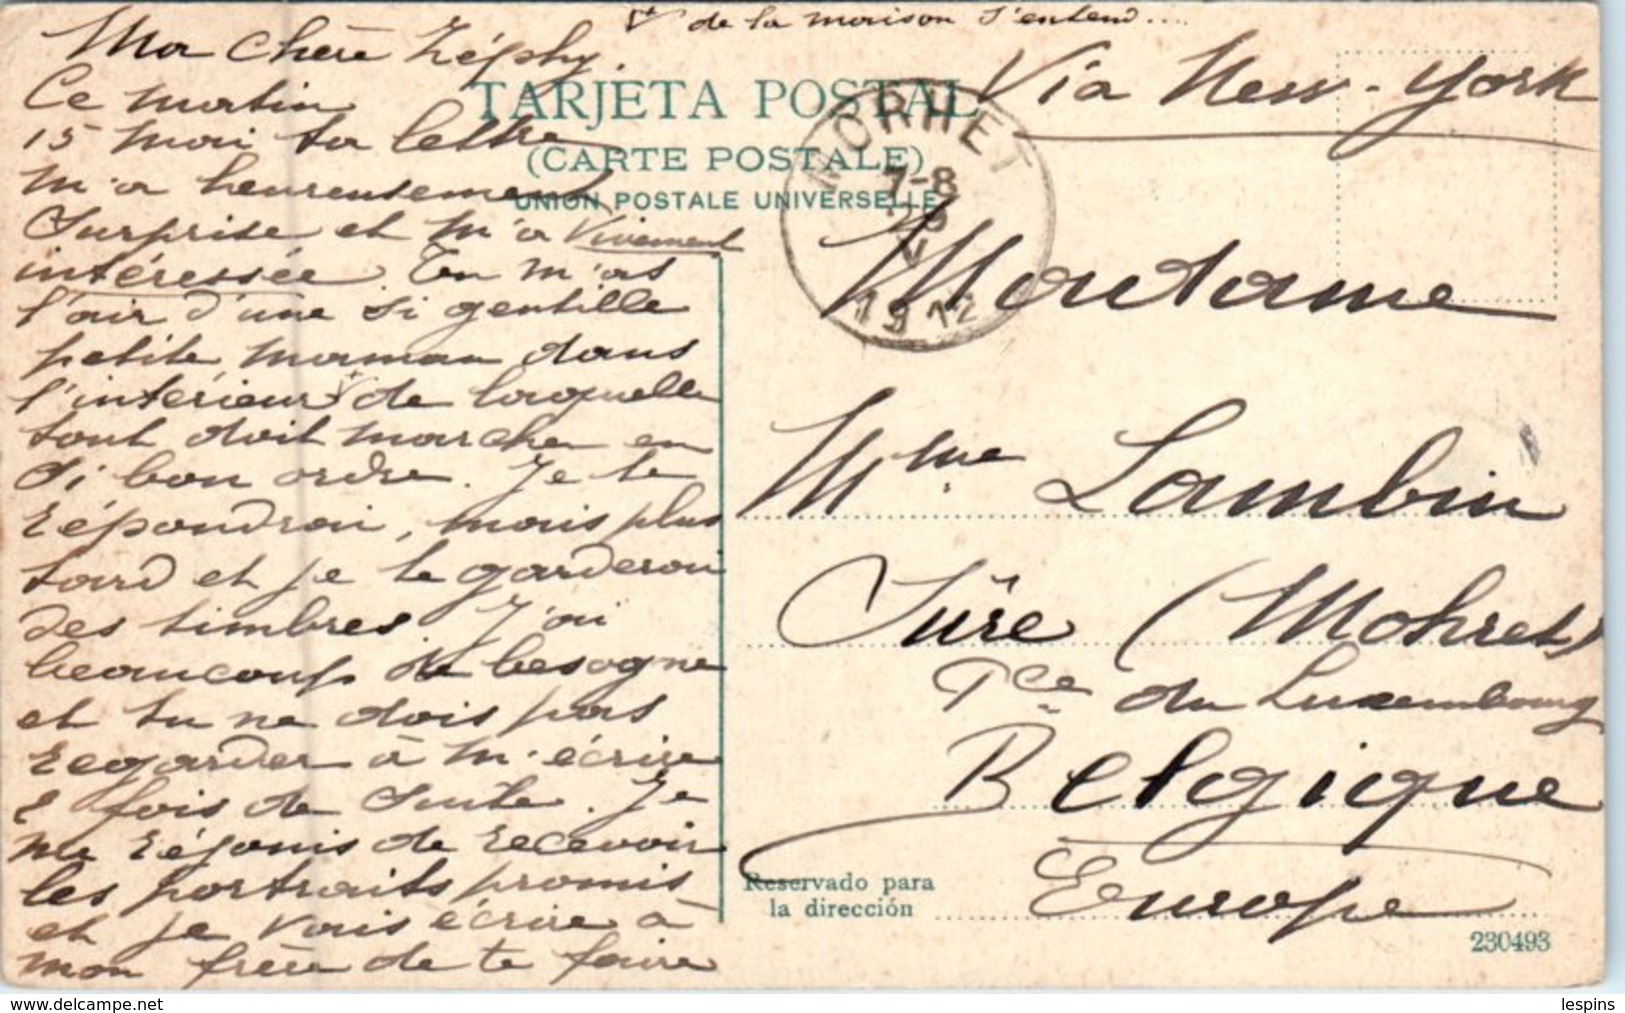 V+ de la maison s'entend....
Ma Chère Zéphy.
Ce matin
15 mai ta lettre
m'a heureusement
surprise et m'a vivement
intéressée. Tu m'as
l'air d'une si gentille
petite maman dans
l'intérieur V+ de laquelle
tout doit marcher en
si bon ordre. Je te
répondrai, mais plus
tard et je te garderai
des timbres. J'ai
beaucoup de besogne
et tu ne dois pas
regarder à m'écrire
2 fois de suite. Je
me réjouis de recevoir
les portraits promis
et je vais écrire à
mon frère de te faire
TARJETA POSTAL
(CARTE POSTALE)
UNION POSTALE UNIVERSELLE
MORHET
7-8
V
1912
Via New-York
Madame
Mme Lambin
Sûre (Mohret)
Pce du Luxembourg
Belgique
Europe
Reservado para
la dirección
230493
delcampe.net
lespins